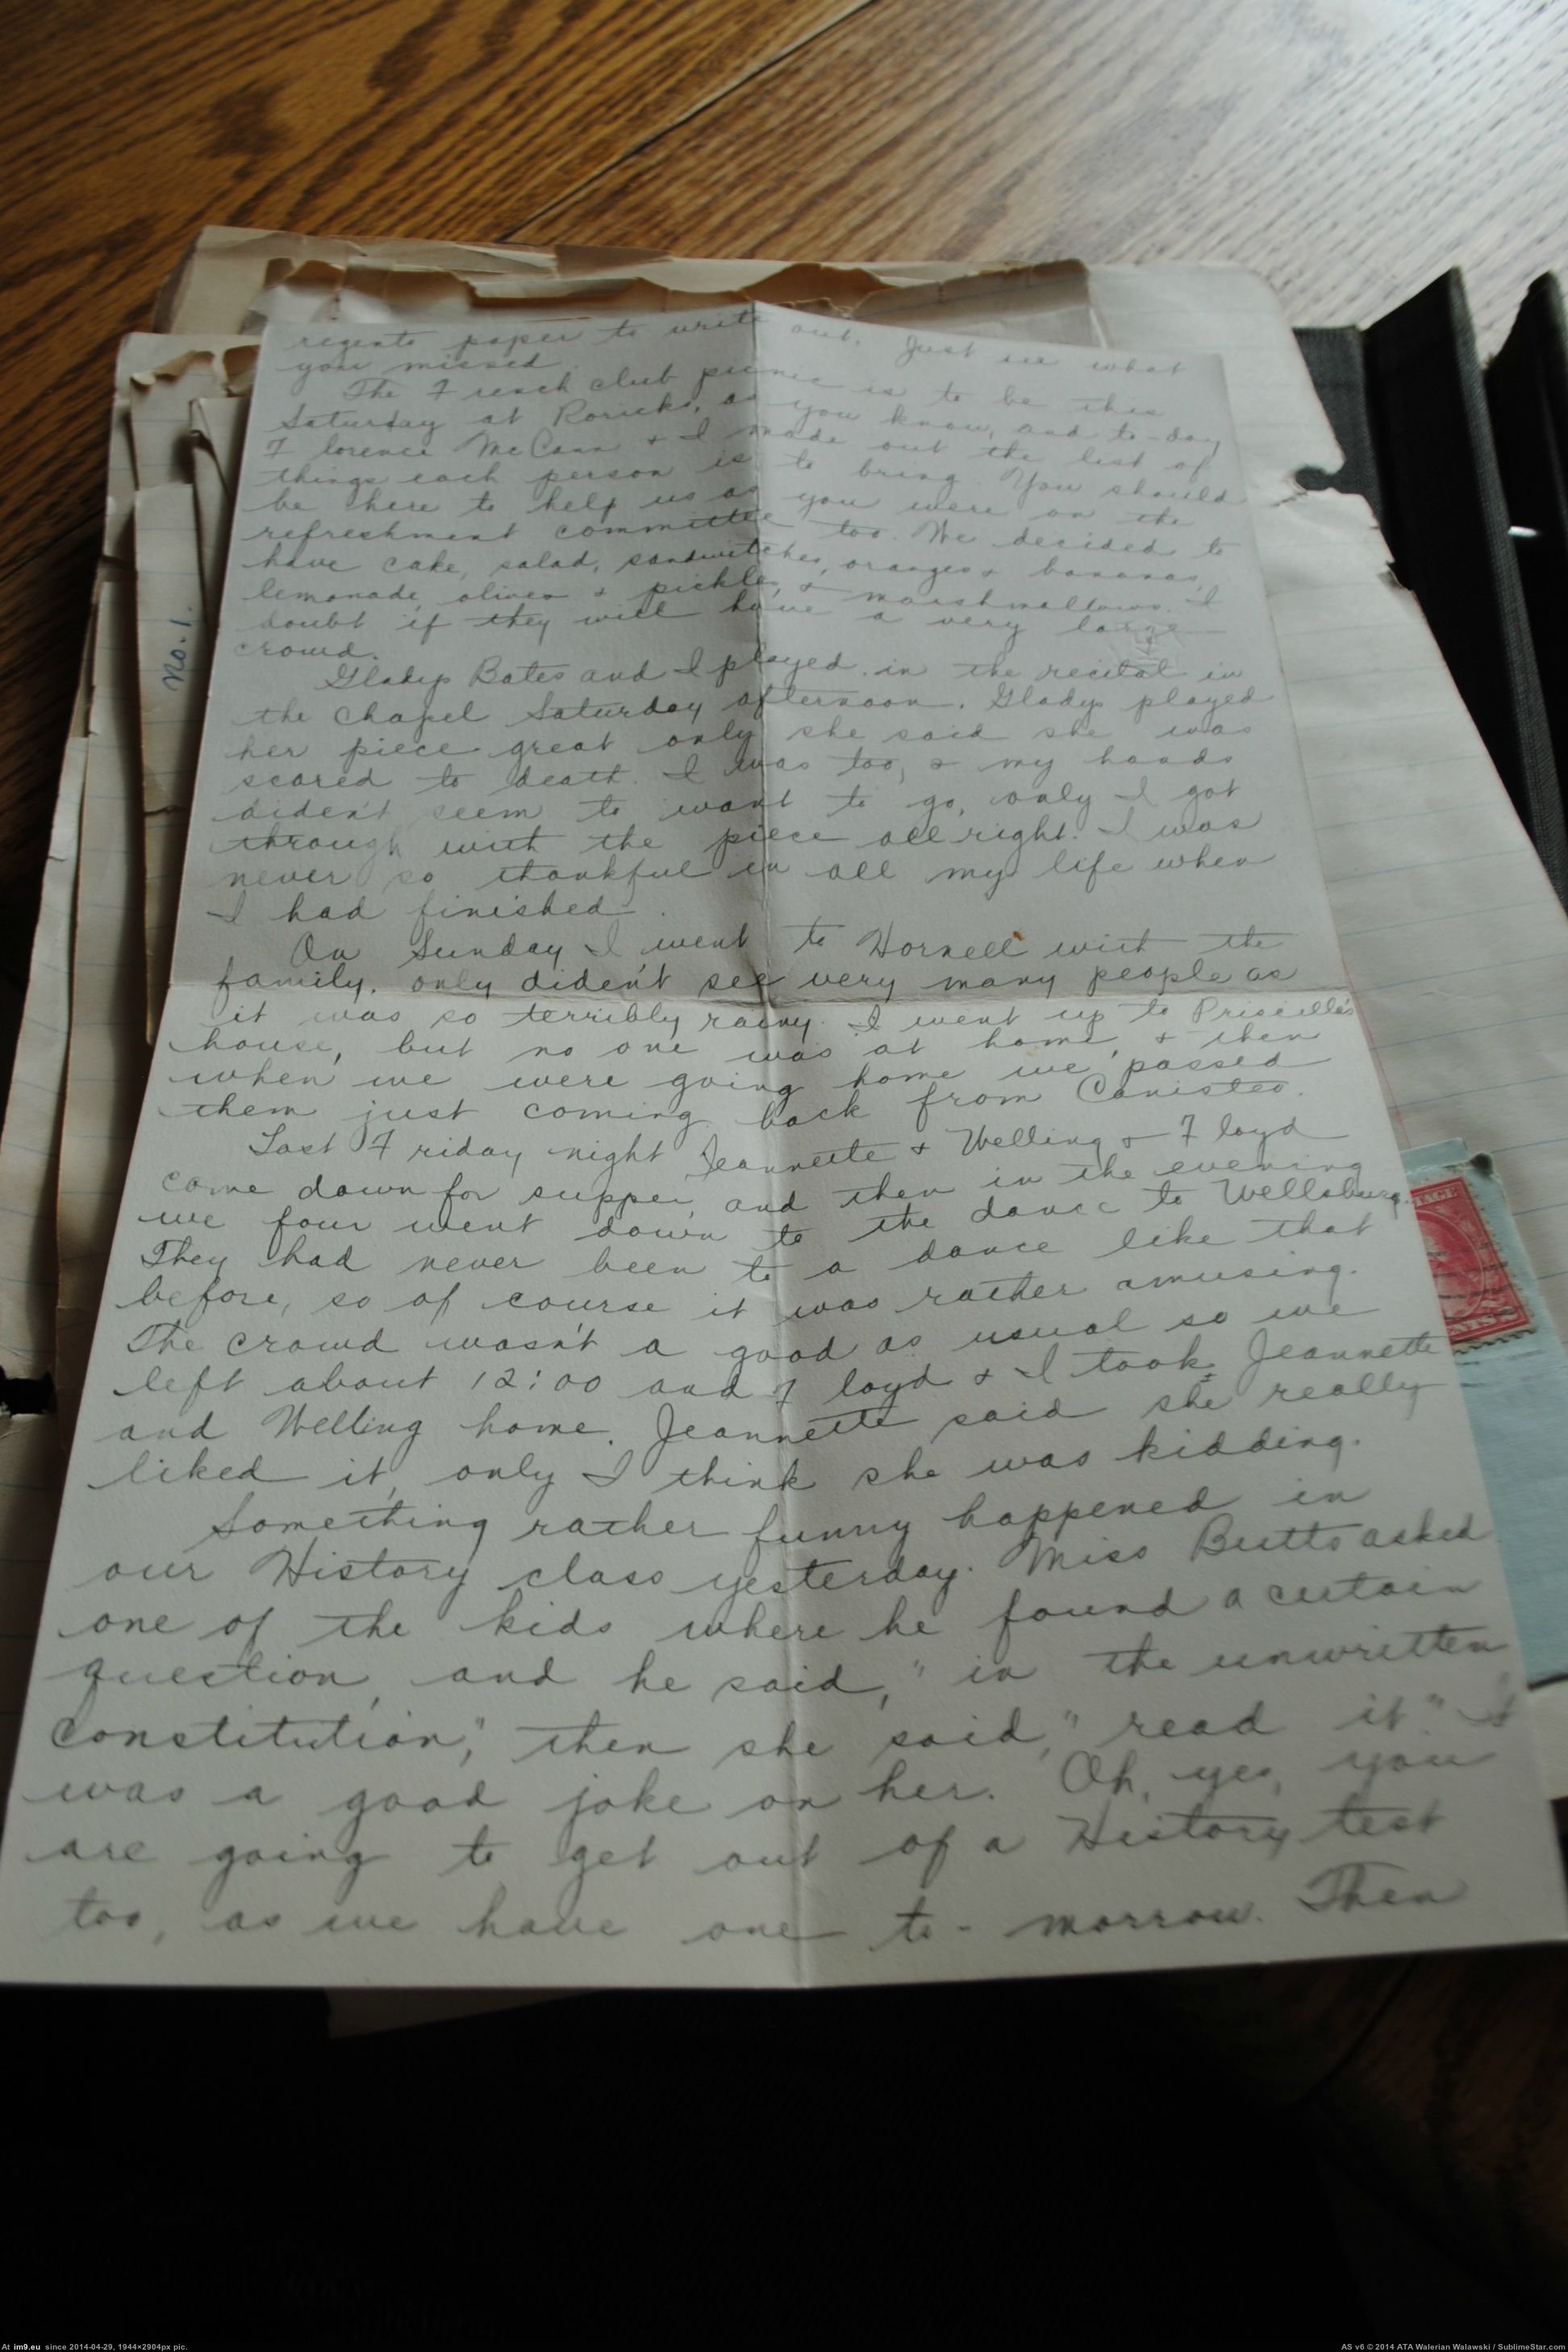 regents paper to write out. Just see what
you missed.
The French club picnic is to be this
Saturday at Roricks, as you know, and to-day
Florence McCann & I made out the list of
things each person is to bring. You should
be here to help us as you were on the
refreshment committee too. We decided to
have cake, salad, sandwitches, oranges & bananas,
lemonade, olives & pickles, & marshmallows. I
doubt if they will have a very large
crowd.
Gladys Bates and I played in the recital in
the chapel Saturday afternoon. Gladys played
her piece great only she said she was
scared to death. I was too, & my hands
dident seem to want to go, only I got
through with the piece all right. I was
never so thankful in all my life when
I had finished.
On Sunday I went to Hornell with the
family, only diden't see very many people as
it was so terribly rainy. I went up to Priscilla's
house, but no one was at home, & then
when we were going home we passed
them just coming back from Canisteo.
Last Friday night Jeannette & Welling & Floyd
came down for supper, and then in the evening
we four went down to the dance to Wellsburg.
They had never been to a dance like that
before, so of course it was rather amusing.
The crowd wasn't a good as usual so we
left about 12:00 and Floyd & I took Jeannette
and Welling home. Jeannette said she really
liked it, only I think she was kidding.
Something rather funny happened in
our History class yesterday. Miss Butts asked
one of the kids where he found a certain
question, and he said, "in the unwritten
constitution", then she said, "read it." It
was a good joke on her. Oh, yes, you
are going to get out of a History test
too, as we have one to-morrow. Then
No. 1.
At im9.eu since 2014-04-29, 1944×2904px pic.
AS v6 © 2014 ATA Walerian Walawski / SublimeStar.com